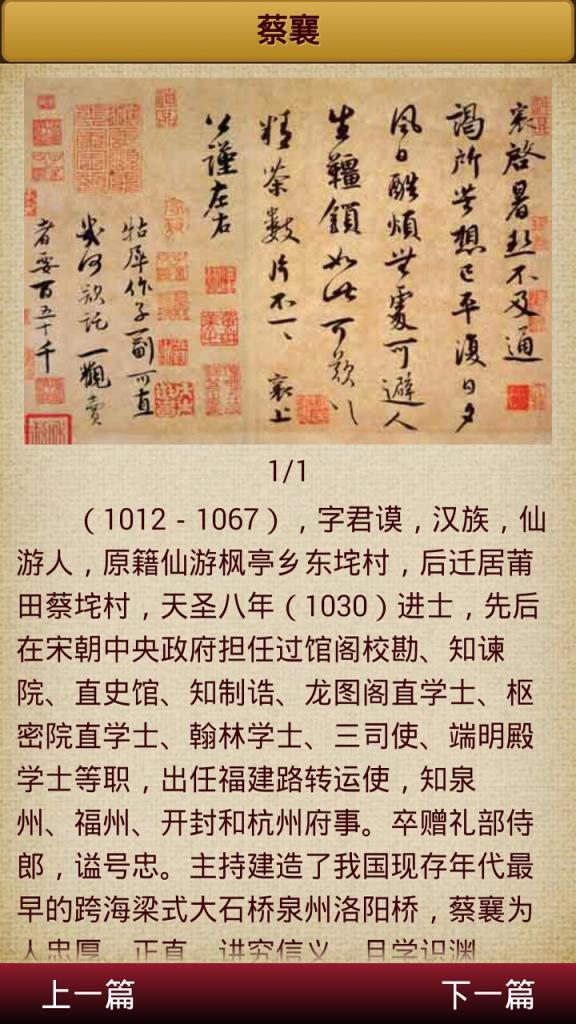 蔡襄
襄启暑热不及通
谒所苦想已平复日夕
风日酷烦无处可避人
生韁鎖如此可歎以
精茶数片不一一襄上
公謹左右
牯犀作子一副可直
幾何欲託一觀賣
者要百五十千
1/1
（1012 - 1067），字君谟，汉族，仙
游人，原籍仙游枫亭乡东垞村，后迁居莆
田蔡垞村，天圣八年（1030）进士，先后
在宋朝中央政府担任过馆阁校勘、知谏
院、直史馆、知制诰、龙图阁直学士、枢
密院直学士、翰林学士、三司使、端明殿
学士等职，出任福建路转运使，知泉
州、福州、开封和杭州府事。卒赠礼部侍
郎，谥号忠。主持建造了我国现存年代最
早的跨海梁式大石桥泉州洛阳桥，蔡襄为
人忠厚、正直，讲究信义，且学识渊
上一篇
下一篇